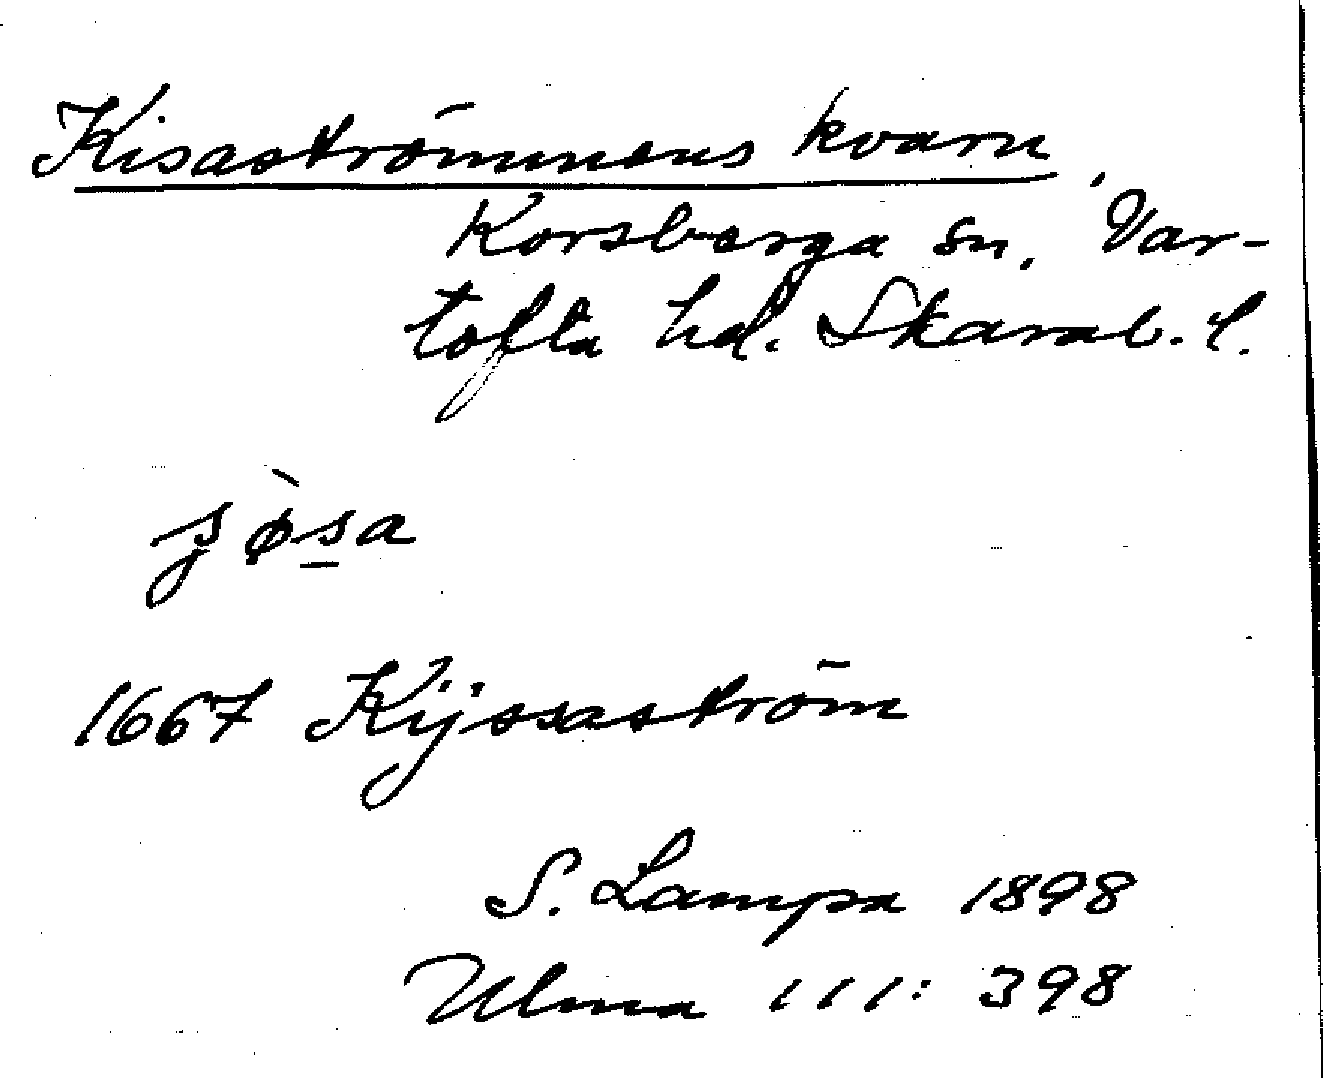 Kisaströmmens kvarn,
Korsberga sn, Var-
tofta hd. Skarab. l.
jø̀s̲a
1667 Kijsaström
S. Lampa 1898
Ulma 111: 398